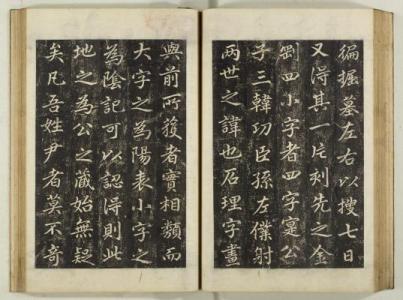 徧掘墓左右以搜七日
又得其一片刻先之金
剛四小字者四字寔公
子三韓功臣孫左僕射
两世之諱也石理字畫
與前所獲者實相類而
大字之為陽表小字之
為陰記可以認得則此
地之為公之藏始無疑
矣凡吾姓尹者莫不奇